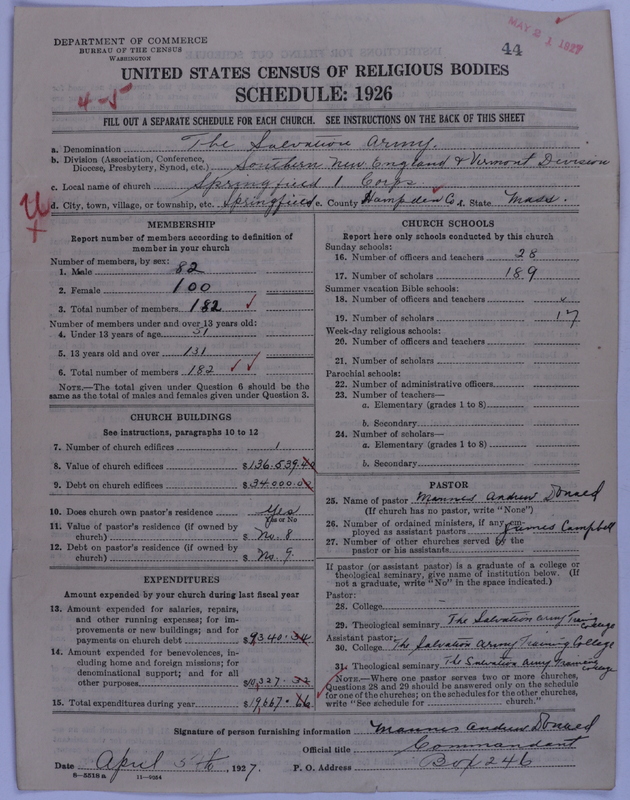 DEPARTMENT OF COMMERCE
BUREAU OF THE CENSUS
WASHINGTON
44
MAY 21 1927
UNITED STATES CENSUS OF RELIGIOUS BODIES
SCHEDULE: 1926
4-5
FILL OUT A SEPARATE SCHEDULE FOR EACH CHURCH. SEE INSTRUCTIONS ON THE BACK OF THIS SHEET
a. Denomination The Salvation Army.
b. Division (Association, Conference, Diocese, Presbytery, Synod, etc.) Southern New England & Vermont Division
c. Local name of church Springfield 1 Corps
d. City, town, village, or township, etc. Springfield e. County Hampden Co f. State Mass.
MEMBERSHIP
Report number of members according to definition of
member in your church
Number of members, by sex:
1. Male 82
2. Female 100
3. Total number of members 182
Number of members under and over 13 years old:
4. Under 13 years of age 51
5. 13 years old and over 131
6. Total number of members 182
NOTE.—The total given under Question 6 should be the
same as the total of males and females given under Question 3.
CHURCH BUILDINGS
See instructions, paragraphs 10 to 12
7. Number of church edifices 1
8. Value of church edifices $136.539.40
9. Debt on church edifices $34.000.00
10. Does church own pastor's residence Yes
Yes or No
11. Value of pastor's residence (if owned by
church) $ No. 8
12. Debt on pastor's residence (if owned by
church) $ No. 9.
EXPENDITURES
Amount expended by your church during last fiscal year
13. Amount expended for salaries, repairs,
and other running expenses; for im-
provements or new buildings; and for
payments on church debt $9340.34
14. Amount expended for benevolences, in-
cluding home and foreign missions; for
denominational support; and for all
other purposes $10,327.32
15. Total expenditures during year $19,667.66
CHURCH SCHOOLS
Report here only schools conducted by this church
Sunday schools:
16. Number of officers and teachers 28
17. Number of scholars 189
Summer vacation Bible schools:
18. Number of officers and teachers
19. Number of scholars 17
Week-day religious schools:
20. Number of officers and teachers
21. Number of scholars
Parochial schools:
22. Number of administrative officers
23. Number of teachers—
a. Elementary (grades 1 to 8)
b. Secondary
24. Number of scholars—
a. Elementary (grades 1 to 8)
b. Secondary
PASTOR
25. Name of pastor Mannes Andrew Donald
(If church has no pastor, write "None")
26. Number of ordained ministers, if any em-
ployed as assistant pastors James Campbell
27. Number of other churches served by the
pastor or his assistants
If pastor (or assistant pastor) is a graduate of a college or
theological seminary, give name of institution below. (If
not a graduate, write "No" in the space indicated.)
Pastor:
28. College
29. Theological seminary The Salvation Army Training College
Assistant pastor:
30. College The Salvation Army Training College
31. Theological seminary The Salvation Army Training College
NOTE.—Where one pastor serves two or more churches,
Questions 28 and 29 should be answered only on the schedule
for one of the churches; on the schedules for the other churches,
write "See schedule for church."
Signature of person furnishing information Mannes Andrew Donald
Official title Commandant
Date April 5th, 1927. P. O. Address Box 246
8-5518a 11-9054